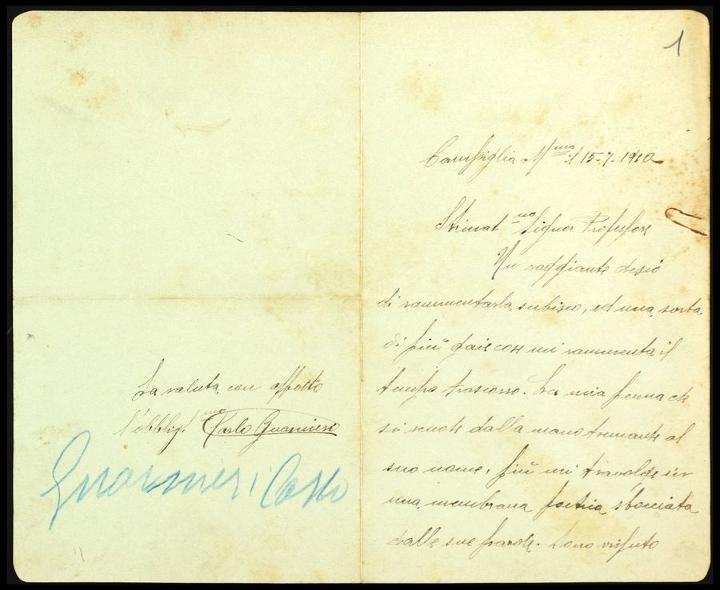 1
Campiglia M.ma il 15-7-1910
Stimat.mo Signor Professore
Un raggiante desio
di rammentarla subisco, ed una sorta
di più gaie cose mi rammenta il
tempo trascorso. La mia penna che
si scuote dalla mano tremante al
suo nome, più mi travolge in
una membrana poetica sbocciata
dalle sue parole. Sono vissuto
La saluta con affetto
l'obbligt.mo Carlo Guarnieri
Guarnieri Carlo